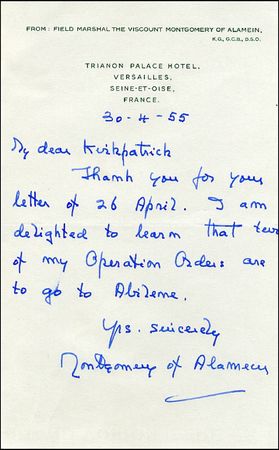 FROM: FIELD MARSHAL THE VISCOUNT MONTGOMERY OF ALAMEIN,
K.G., G.C.B., D.S.O.
TRIANON PALACE HOTEL,
VERSAILLES,
SEINE-ET-OISE,
FRANCE.
30-4-55
My dear Kirkpatrick
Thank you for your
letter of 26 April. I am
delighted to learn that two
of my Operation Orders are
to go to Abilene.
Yrs. sincerely
Montgomery of Alamein